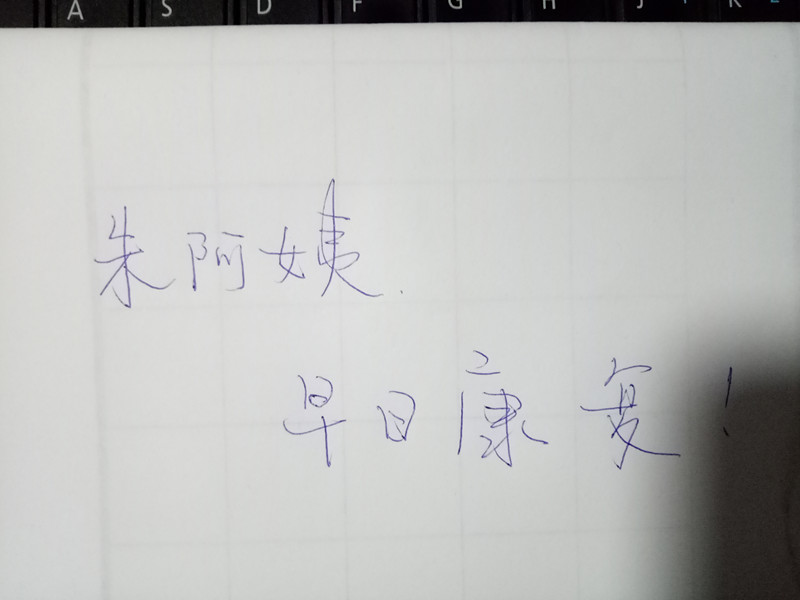 A S D F G H J K
朱阿姨.
早日康复！